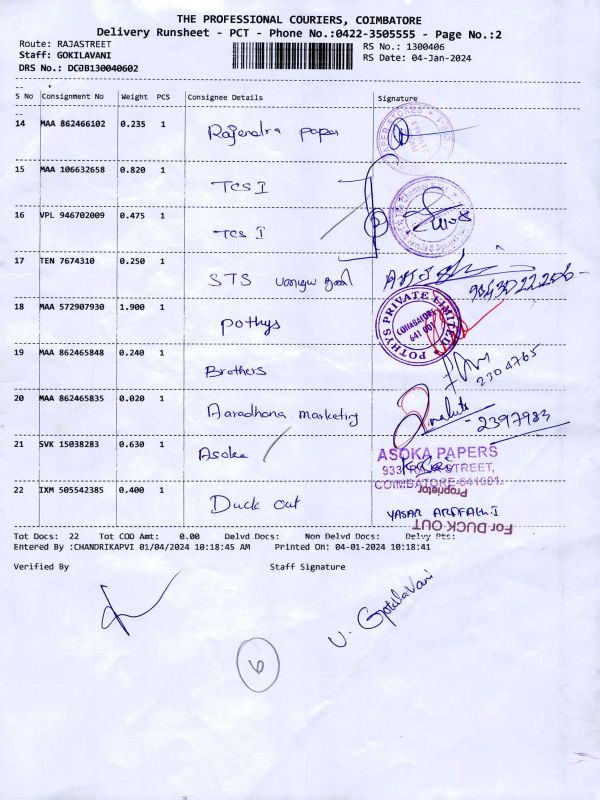 THE PROFESSIONAL COURIERS, COIMBATORE
Delivery Runsheet - PCT - Phone No.:0422-3505555 - Page No.:2
Route: RAJASTREET
RS No.: 1300406
Staff: GOKILAVANI
RS Date: 04-Jan-2024
DRS No.: DCOJB130040602
S No Consignment No Weight PCS Consignee Details Signature
14 MAA 862466102 0.235 1 Rajendra paper
15 MAA 106632658 0.820 1 TCS I
16 VPL 946702009 0.475 1 TCS I
17 TEN 7674310 0.250 1 STS
18 MAA 572907930 1.900 1 Pothys
POTHYS PRIVATE LIMITED
COIMBATORE
641 001
19 MAA 862465848 0.240 1 Brothers
2304765
20 MAA 862465835 0.020 1 Aaradhana marketing
2397983
21 SVK 15038283 0.630 1 Asoka
ASOKA PAPERS
933, RAJA STREET,
COIMBATORE-641001.
Proprietor
22 IXM 505542385 0.400 1 Duck out
YASAR ARAFATH.I
For DUCK OUT
Tot Docs: 22 Tot COD Amt: 0.00 Delvd Docs: Non Delvd Docs: Delvy Pts:
Entered By :CHANDRIKAPVI 01/04/2024 10:18:45 AM Printed On: 04-01-2024 10:18:41
Verified By Staff Signature
V. Gokilavani
6